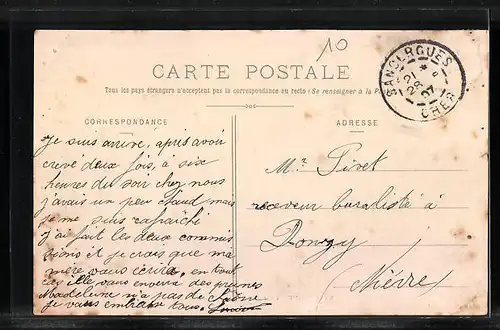 10
CARTE POSTALE
Tous les pays étrangers n'acceptent pas la correspondance au recto (Se renseigner à la
SANCERGUES
CHER
CORRESPONDANCE
ADRESSE
Je suis arrivé, après avoir
crevé deux fois, à six
heures du soir chez nous
j'avais un peu chaud mais
je me suis rafraîchi
j'ai fait les deux commis
sions et je crois que ma
mère vous écrira, en tout
cas elle vous enverra des prunes
Madeleine n'a pas de
je vous embrasse tous.
Mr Pivet
receveur buraliste à
Donzy
Nièvre